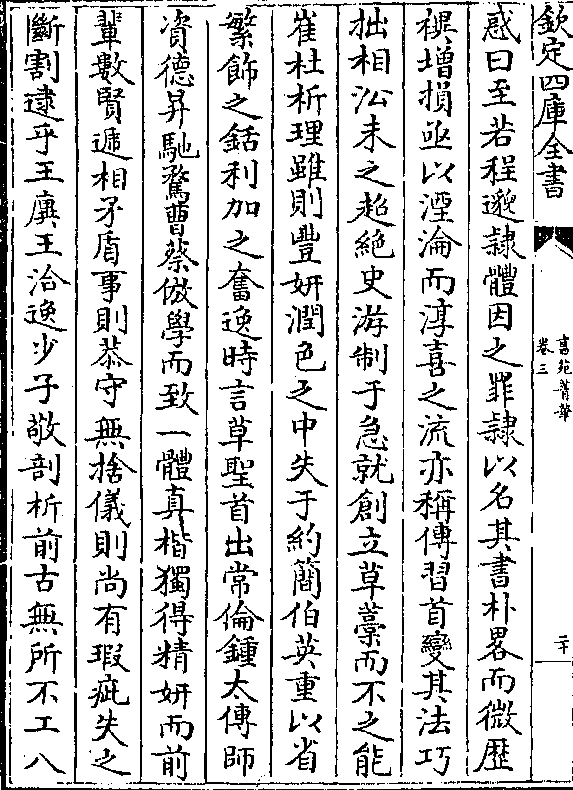 欽定四庫全書
書苑菁華
卷三
二十
惑曰至若程邈隷體因之罪隷以名其書朴畧而微歴
禩增損亟以湮淪而淳喜之流亦稱傳習首變其法巧
拙相沿未之超絶史游制于急就創立草藁而不之能
崔杜析理雖則豐妍潤色之中失于約簡伯英重以省
繁飾之銛利加之奮逸時言草聖首出常倫鍾太傅師
資德昇馳騖曹蔡倣學而致一體真楷獨得精妍而前
輩數賢遞相矛盾事則恭守無捨儀則尚有瑕疵失之
斷割逮乎王廙王洽逸少子敬剖析前古無所不工八